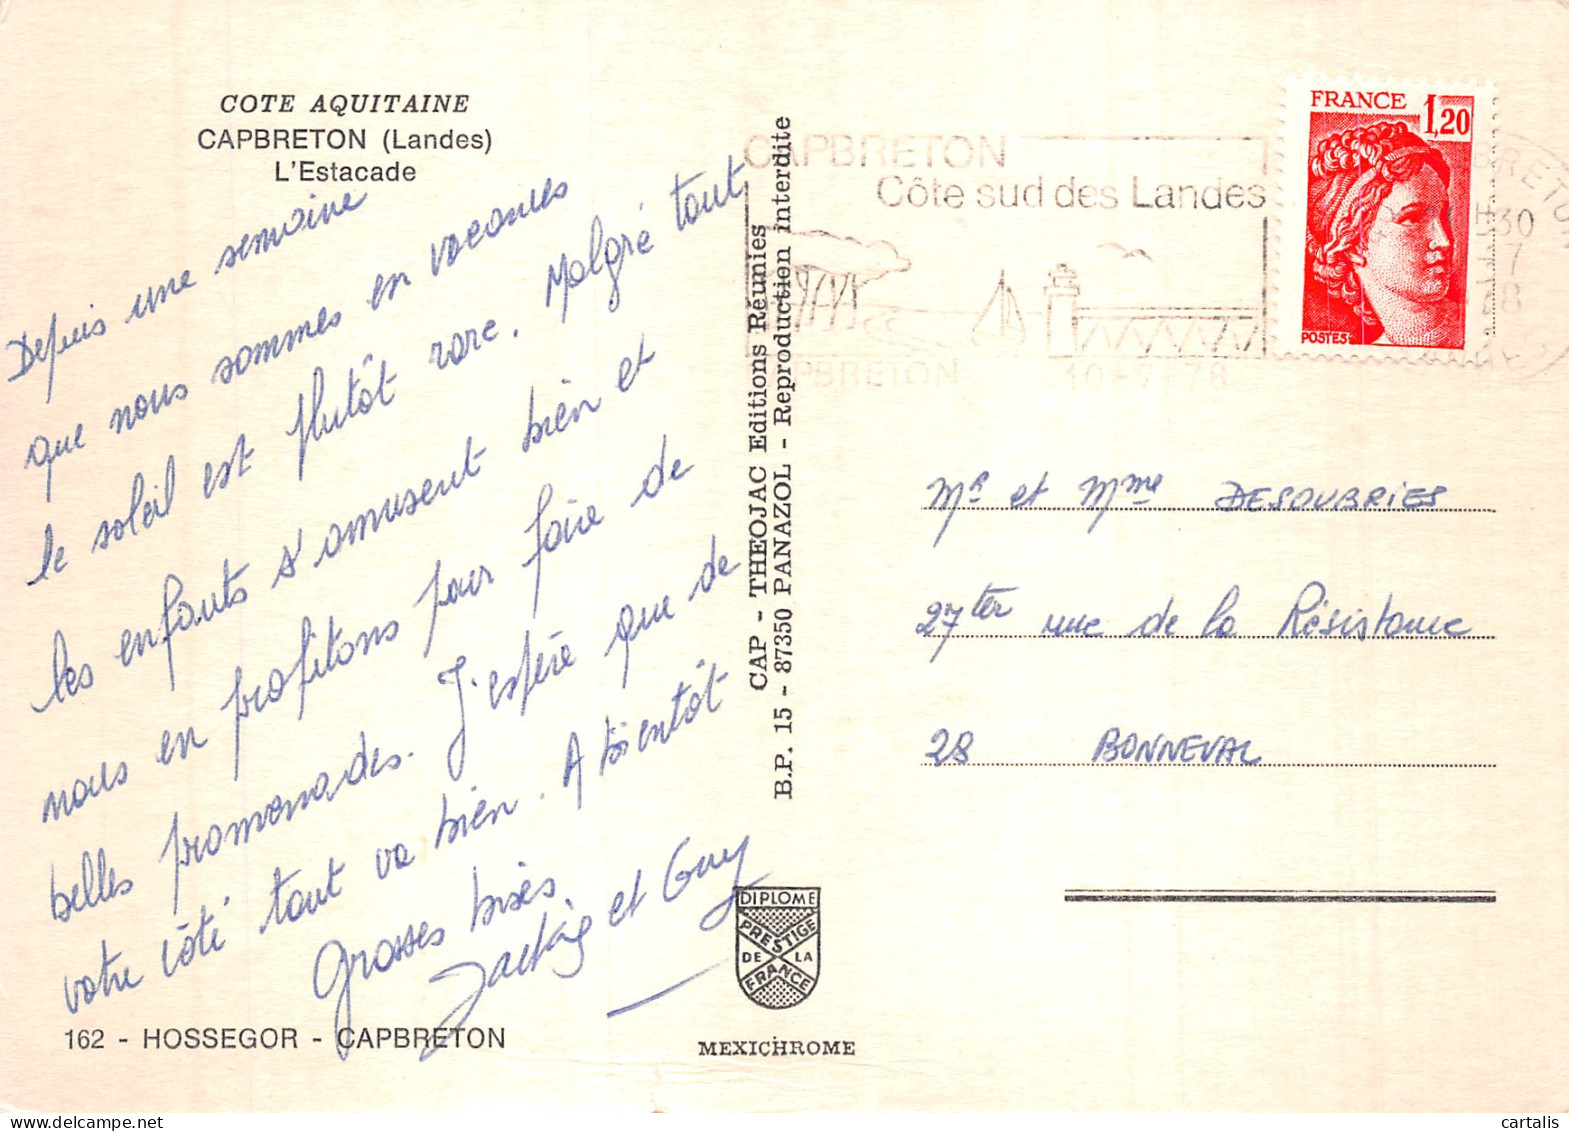 COTE AQUITAINE
CAPBRETON (Landes)
L'Estacade
Depuis une semaine
que nous sommes en vacances
le soleil est plutôt rare. Malgré tout
les enfants s'amusent bien et
nous en profitons pour faire de
belles promenades. J'espère que de
votre côté tout va bien. A bientôt
Grosses bises.
et Guy
162 - HOSSEGOR - CAPBRETON
CAP - THEOJAC Editions Réunies
B.P. 15 - 87350 PANAZOL - Reproduction interdite
DIPLOME
PRESTIGE
DE LA
FRANCE
MEXICHROME
CAPBRETON
Côte sud des Landes
CAPBRETON 10-7-78
FRANCE 1,20
POSTES
BRETON
H30
7
78
Mr et Mme DESOUBRIES
27ter rue de la Résistance
28 BONNEVAL
cartalis